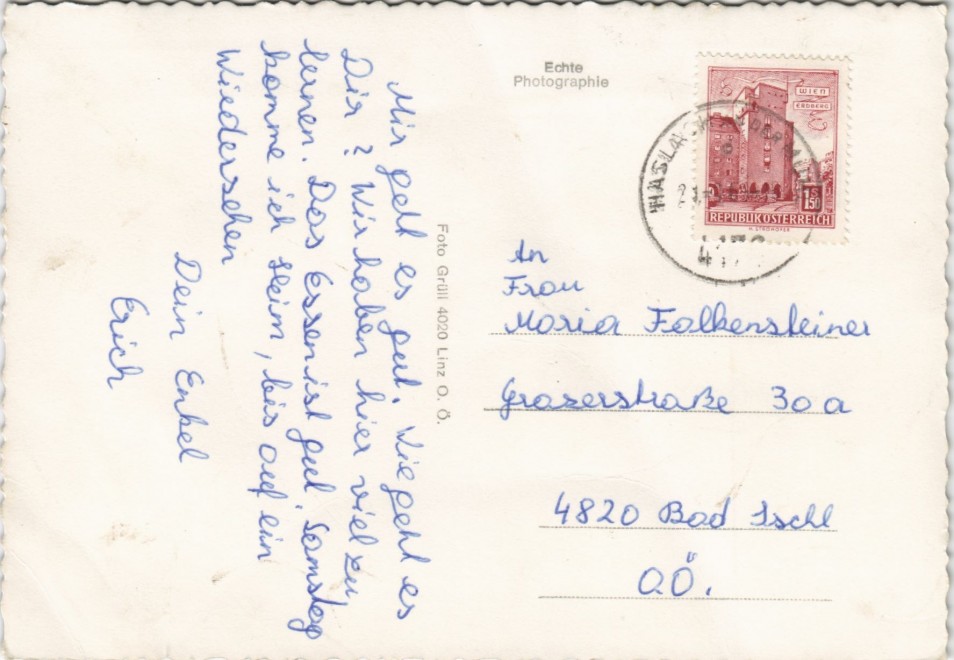 Mir geht es gut. Wie geht es
Dir? Wir haben hier viel zu
lernen. Das Essen ist gut. Samstag
komme ich heim, bis auf ein
Wiedersehen
Dein Enkel
Erich
Foto Grüll 4020 Linz O. Ö.
Echte
Photographie
WIEN
ERDBERG
1S
50
REPUBLIK ÖSTERREICH
HASLACH
An
Frau
Maria Falkensteiner
Grazerstraße 30a
4820 Bad Ischl
OÖ.